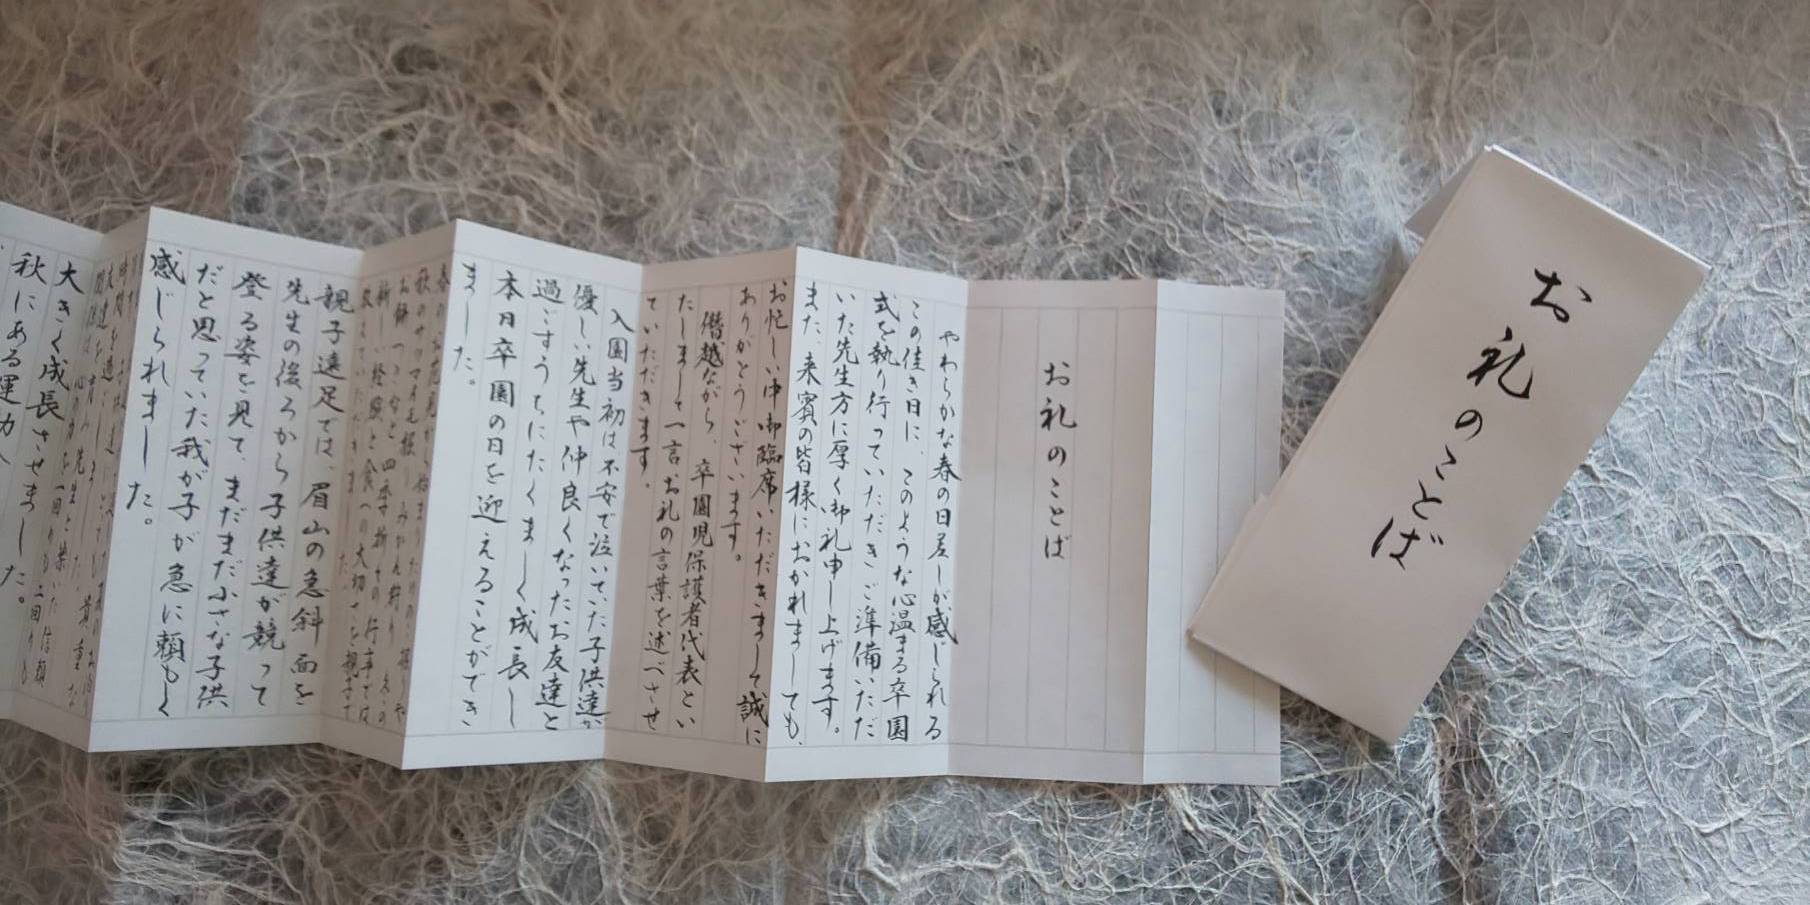 お礼のことば
お礼のことば
やわらかな春の日差しが感じられる
この佳き日に、このような心温まる卒園
式を執り行っていただき ご準備いただ
いた先生方に厚く御礼申し上げます。
また、来賓の皆様におかれましても、
お忙しい中御臨席いただきまして誠に
ありがとうございます。
僭越ながら、卒園児保護者代表とい
たしまして一言お礼の言葉を述べさせ
ていただきます。
入園当初は不安で泣いていた子供達が
優しい先生や仲良くなったお友達と
過ごすうちにたくましく成長し
本日卒園の日を迎えることができ
ました。
春のお花見から始まり
秋のサツマイモ掘り
新しい経験と食への大切さを親子で
親子遠足では、眉山の急斜面を
先生の後ろから子供達が競って
登る姿を見て、まだまだ小さな子供
だと思っていた我が子が急に頼もしく
感じられました。
大きく成長させました。
秋にある運動